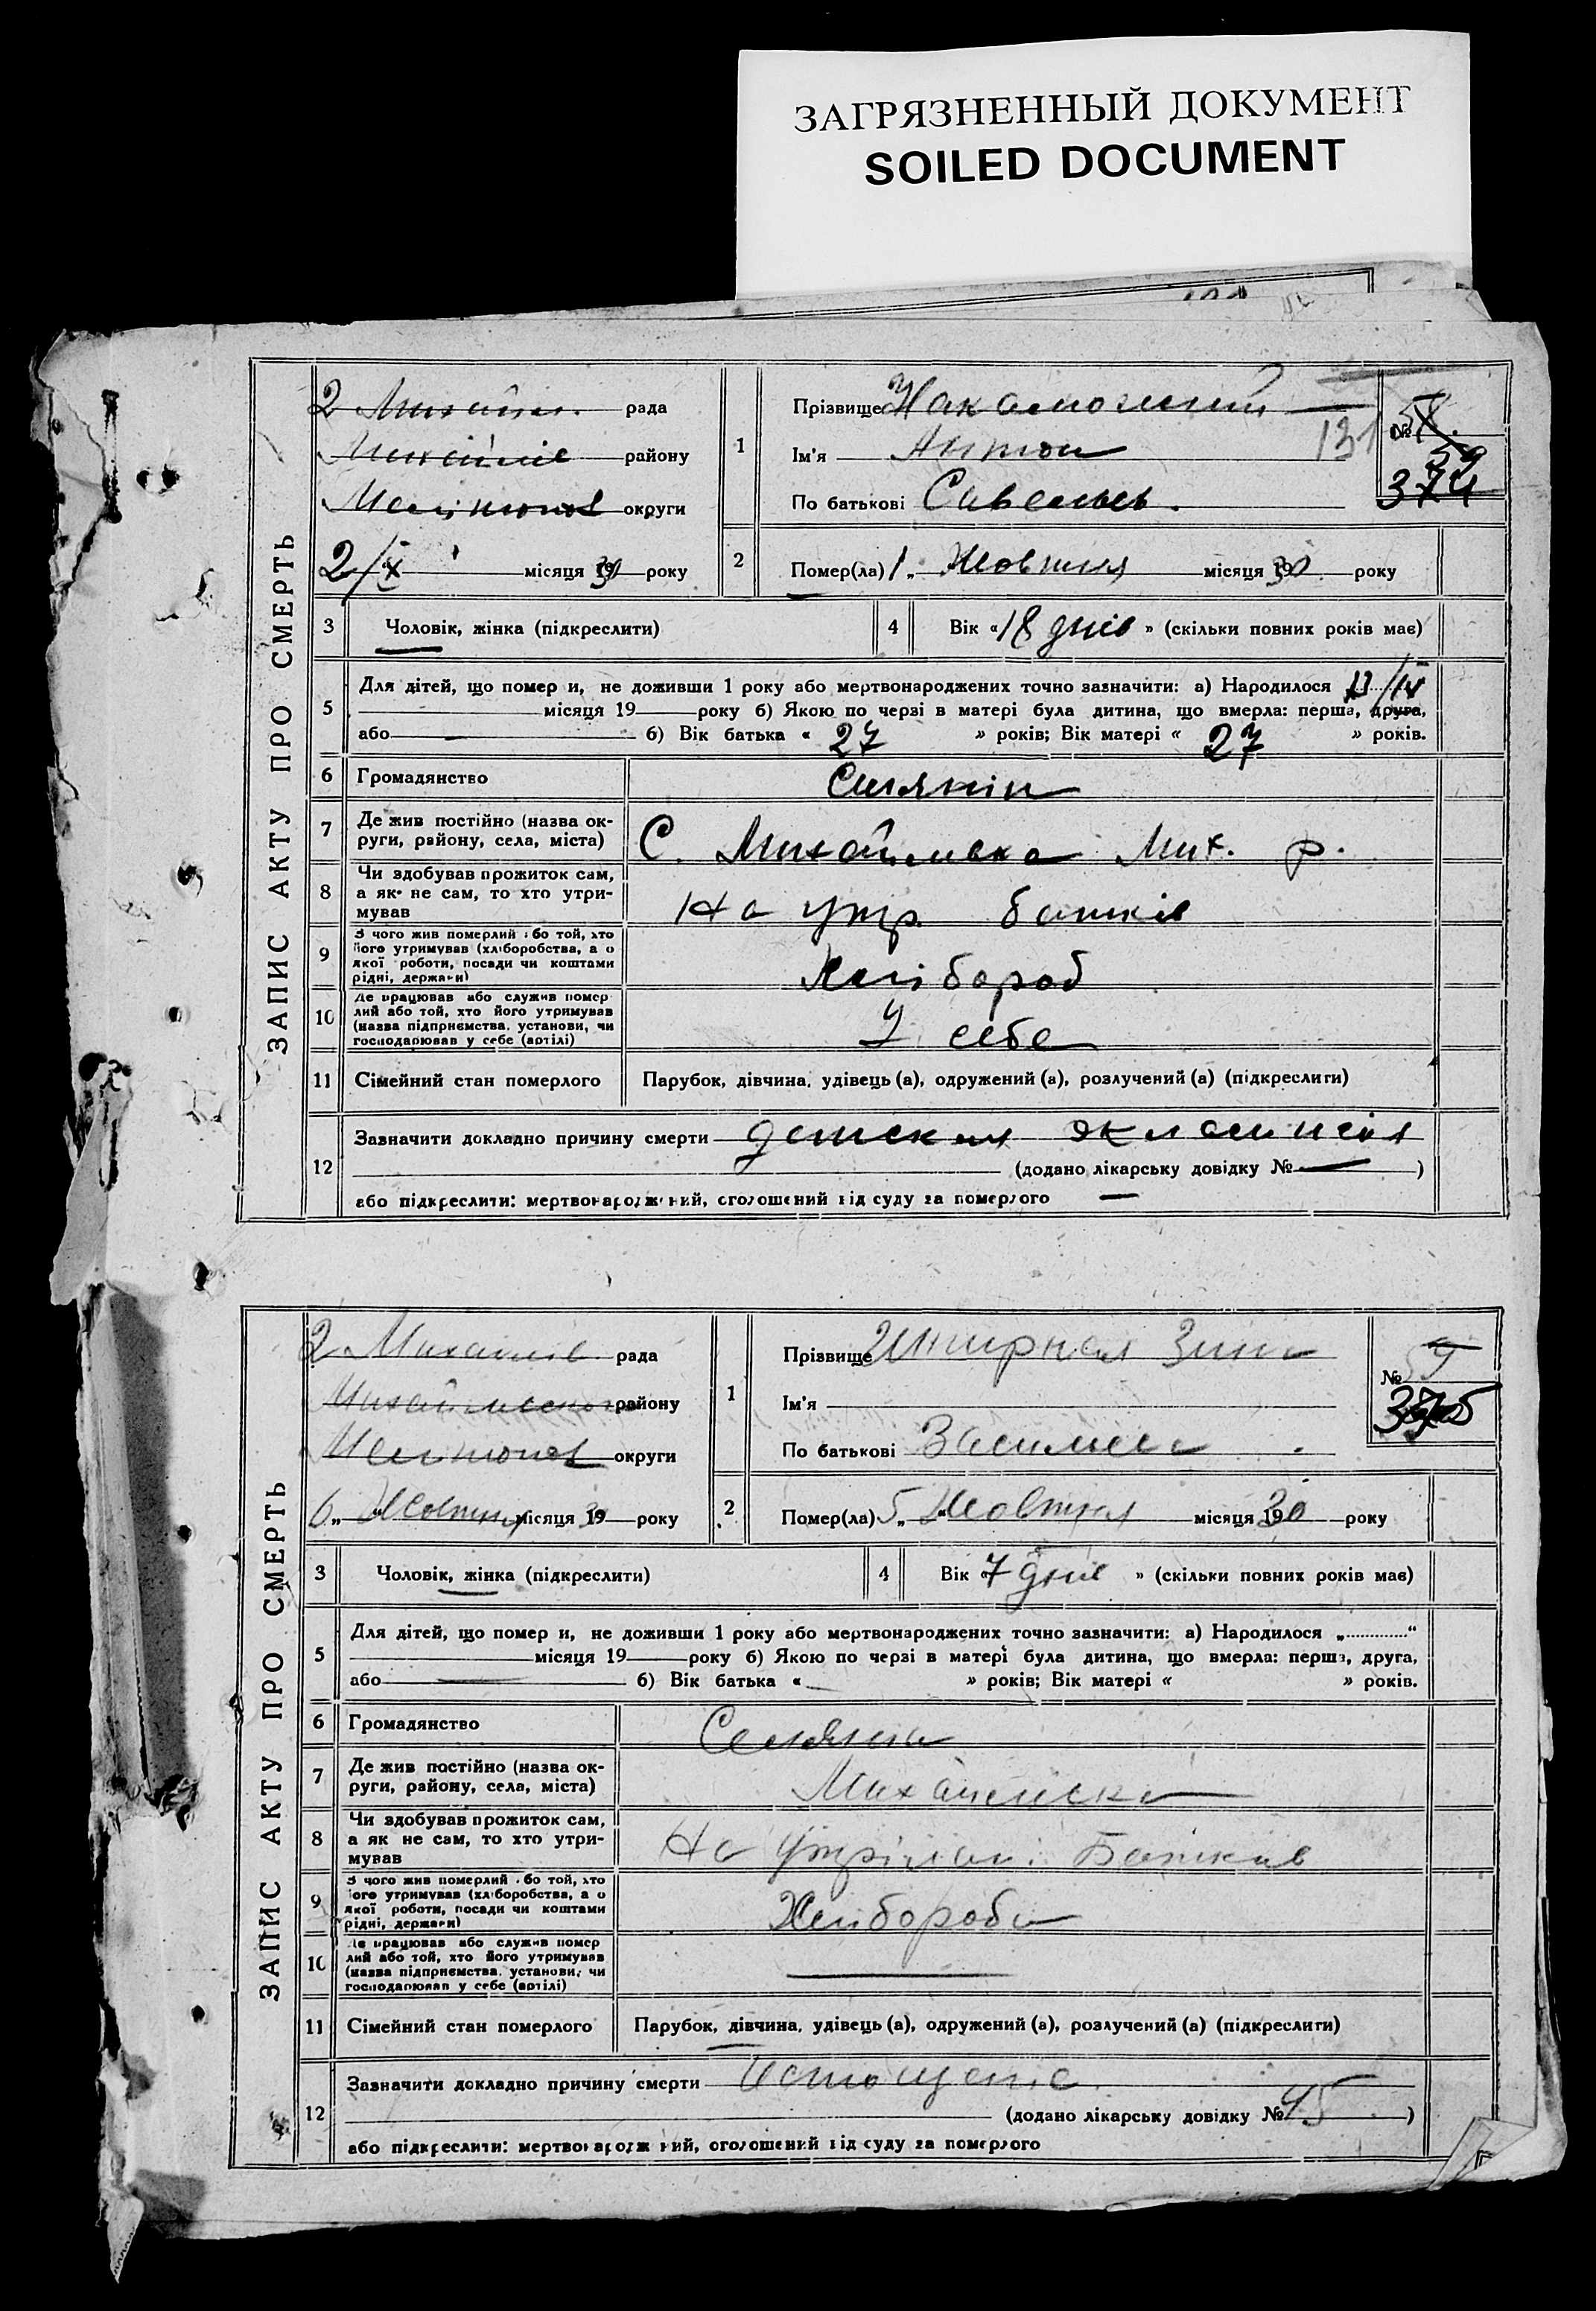 ЗАГРЯЗНЕННЫЙ ДОКУМЕНТ
SOILED DOCUMENT
ЗАПИС АКТУ ПРО СМЕРТЬ
2 Михайл. рада
Михайлів району
Мелітопол округи
2/X місяця 1930 року
1
Прізвище
Ім'я Антон
По батькові Савельев.
131
№ 58.
59
374
2
Помер(ла) 1 „ Жовтня місяця 1930 року
3 Чоловік, жінка (підкреслити)
4 Вік « 18 днів » (скільки повних років має)
5 Для дітей, що помер и, не доживши 1 року або мертвонароджених точно зазначити: а) Народилося 13/IX
місяця 19 року б) Якою по черзі в матері була дитина, що вмерла: перша, друга,
або — б) Вік батька « 27 » років; Вік матері « 27 » років.
6 Громадянство Силянін
7 Де жив постійно (назва ок-
руги, району, села, міста) С. Михайливка Мих. р.
8 Чи здобував прожиток сам,
а як не сам, то хто утри-
мував На утр. батьків
9 З чого жив померлий або той, хто
його утримував (хліборобства, а о
якої роботи, посади чи коштами
рідні, держави) Хлібороб
10 Де працював або служив помер
лий або той, хто його утримував
(назва підприємства, установи, чи
господарював у себе (артілі) У себе
11 Сімейний стан померлого Парубок, дівчина, удівець (а), одружений (а), розлучений (а) (підкреслити)
12 Зазначити докладно причину смерти детская эклампсия
(додано лікарську довідку № — )
або підкреслити: мертвонароджений, оголошений від суду за померлого —
ЗАПИС АКТУ ПРО СМЕРТЬ
2 Михайлів. рада
Михайлівского району
Мелітопол округи
6 „ Жовтня місяця 1930 року
1
Прізвище Зина
Ім'я
По батькові
№ 59
375
2
Помер(ла) 5 „ Жовтня місяця 1930 року
3 Чоловік, жінка (підкреслити)
4 Вік « 7 днів » (скільки повних років має)
5 Для дітей, що помер и, не доживши 1 року або мертвонароджених точно зазначити: а) Народилося „ “
місяця 19 року б) Якою по черзі в матері була дитина, що вмерла: перша, друга,
або — б) Вік батька « » років; Вік матері « » років.
6 Громадянство Селянка
7 Де жив постійно (назва ок-
руги, району, села, міста) Михайлівка
8 Чи здобував прожиток сам,
а як не сам, то хто утри-
мував На утрімані Батьків
9 З чого жив померлий або той, хто
його утримував (хліборобства, а о
якої роботи, посади чи коштами
рідні, держави) Хлібороби
10 Де працював або служив помер
лий або той, хто його утримував
(назва підприємства, установи, чи
господарював у себе (артілі) —
11 Сімейний стан померлого Парубок, дівчина, удівець (а), одружений (а), розлучений (а) (підкреслити)
12 Зазначити докладно причину смерти Истощение
(додано лікарську довідку № 45 )
або підкреслити: мертвонароджений, оголошений від суду за померлого